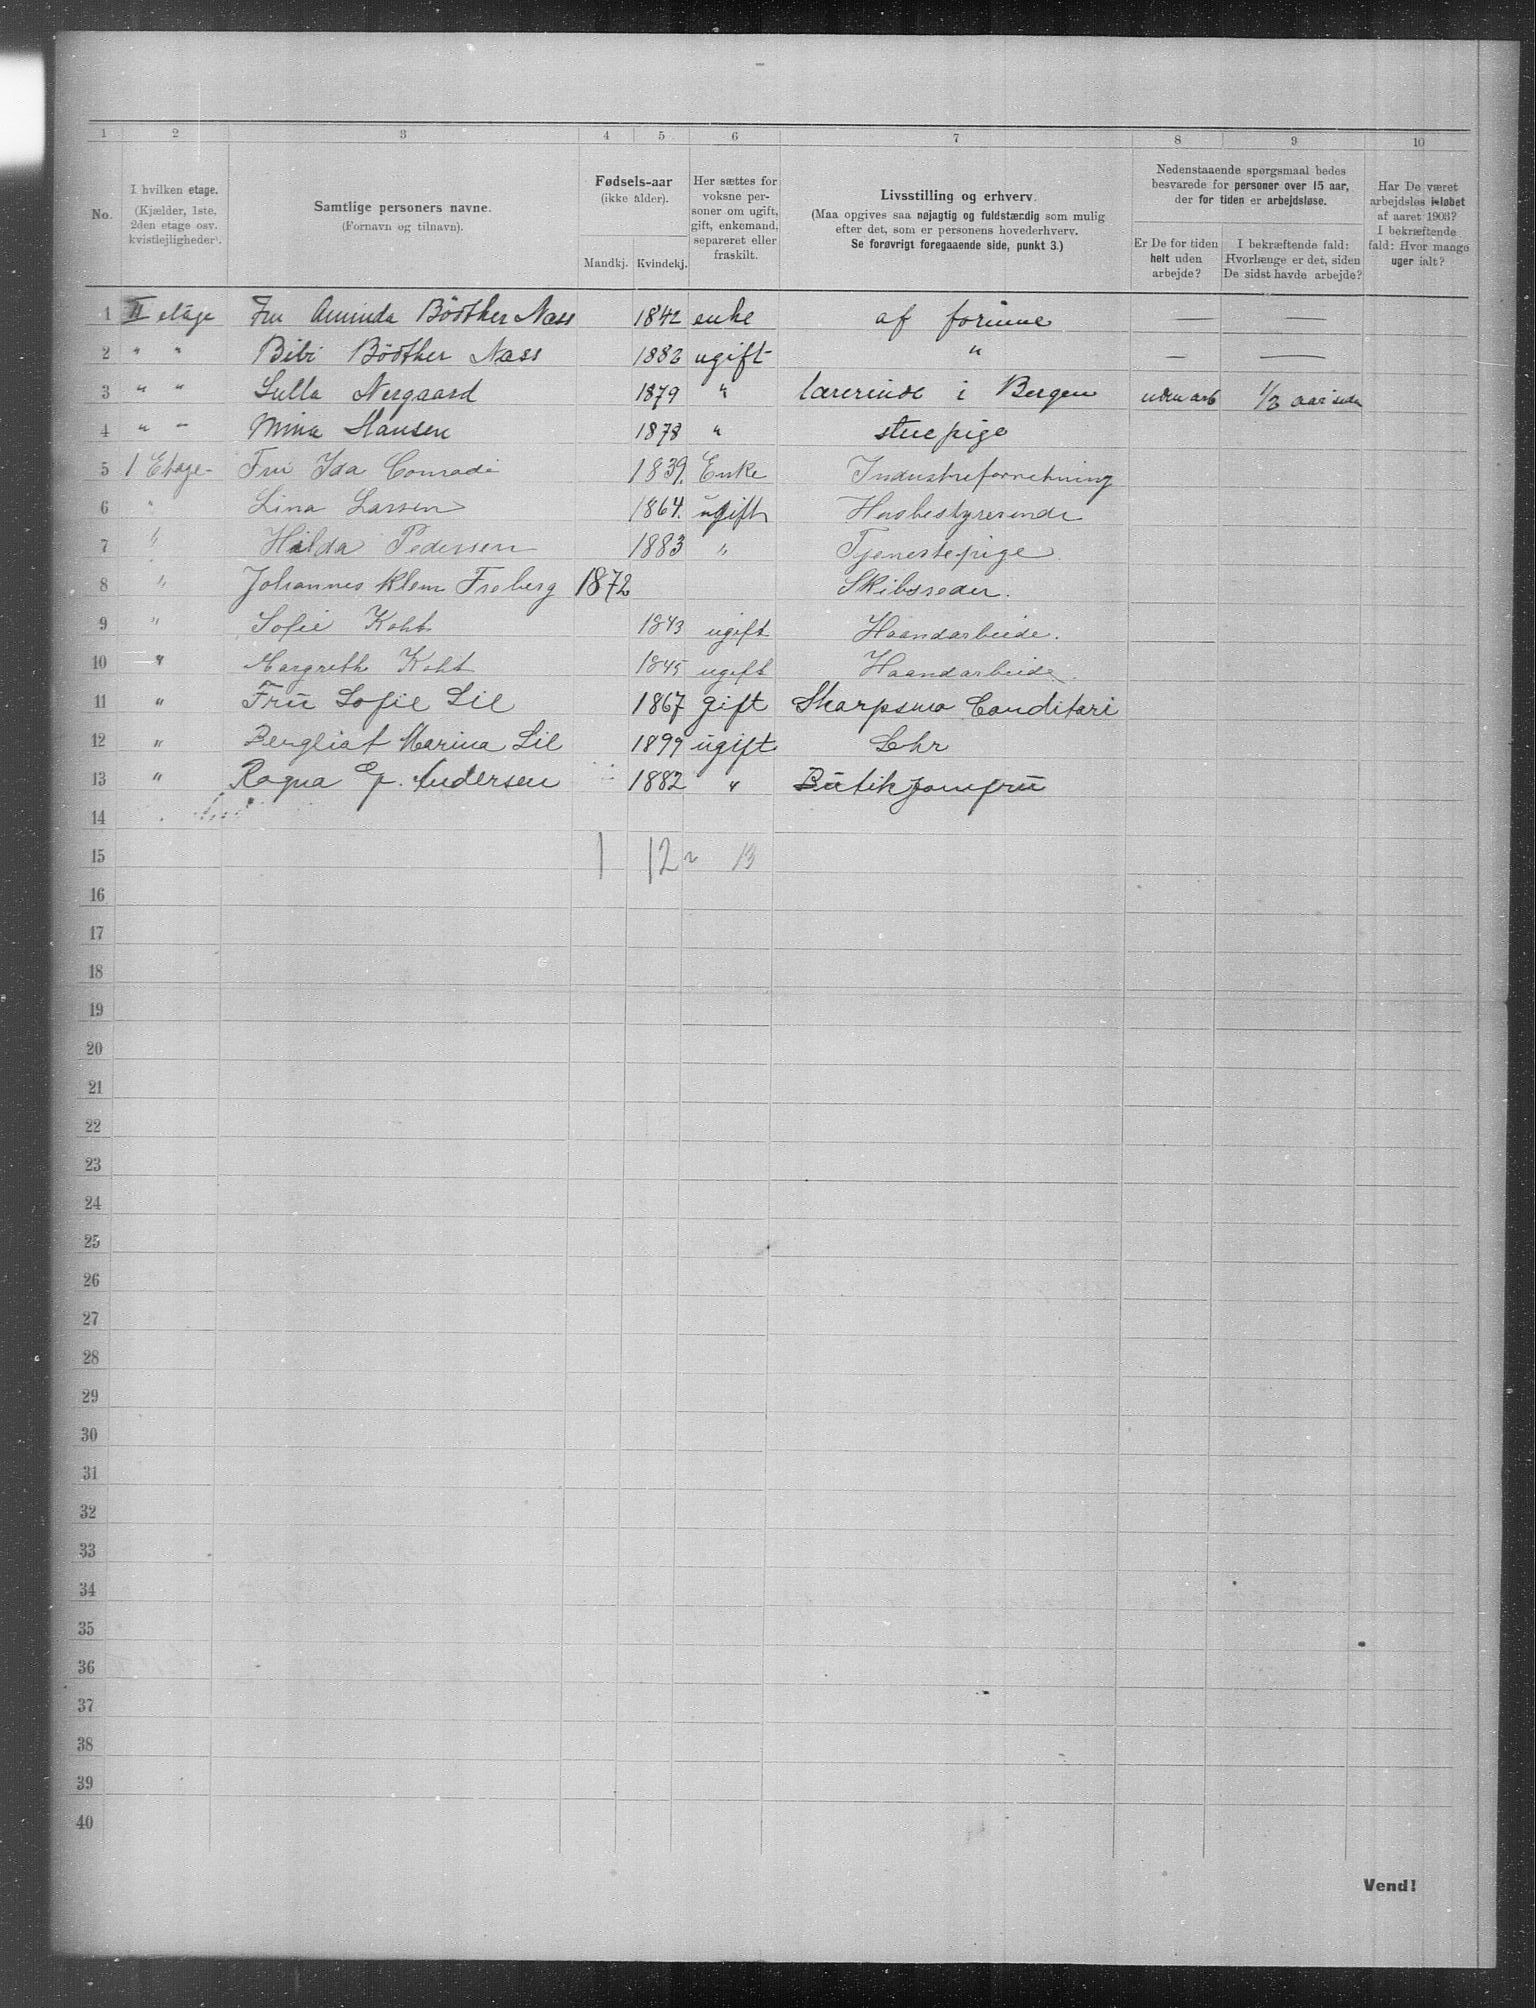 1 2 3 4 5 6 7 8 9 10
No.
I hvilken etage.
(Kjælder, 1ste,
2den etage osv.
kvistlejligheder).
Samtlige personers navne.
(Fornavn og tilnavn).
Fødsels-aar
(ikke alder).
Mandkj. Kvindekj.
Her sættes for
voksne per-
soner om ugift,
gift, enkemand,
separeret eller
fraskilt.
Livsstilling og erhverv.
(Maa opgives saa nøjagtig og fuldstændig som mulig
efter det, som er personens hovederhverv.
Se forøvrigt foregaaende side, punkt 3.)
Nedenstaaende spørgsmaal bedes
besvarede for personer over 15 aar,
der for tiden er arbejdsløse.
Er De for tiden
helt uden
arbejde?
I bekræftende fald:
Hvorlænge er det, siden
De sidst havde arbejde?
Har De været
arbejdsløs i løbet
af aaret 1903?
I bekræftende
fald: Hvor mange
uger ialt?
1 II etage Fru Aminda Bödtker Næss 1842 enke af formue — —
2 " " Bibi Bödtker Næss 1882 ugift " — —
3 " " Sulla Nergaard 1879 " lærerinde i Bergen uden arb 1/2 aar siden
4 " " Mina Hansen 1878 " stuepige
5 1 Etage- Fru Ida Conradi 1839. Enke Industriforretning
6 " Lina Larsen 1864. ugift Husbestyrerinde
7 " Hilda Pedersen 1883 " Tjenestepige
8 " Johannes Klem Froberg 1872 Skibsreder.
9 " Sofie Koht 1843 ugift Haandarbeide.
10 " Margreth Koht 1845 ugift Haandarbeide.
11 " Fru Sofie Lie 1867 gift Skarpsmo Conditori
12 " Bergliat Marina Lie 1899 ugift
13 " Ragna G. Andersen 1882 " Butikjomfru
14
15 1 12 ~ 13
16
17
18
19
20
21
22
23
24
25
26
27
28
29
30
31
32
33
34
35
36
37
38
39
40
Vend!